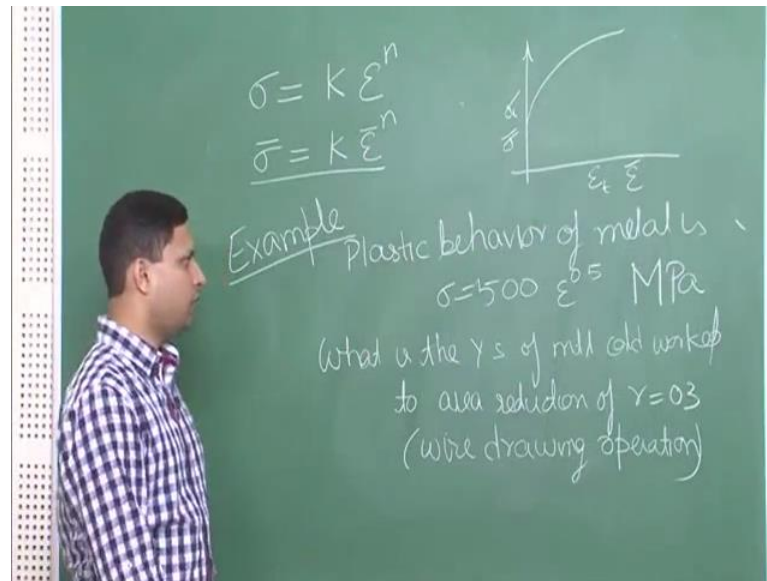 σ = K ε^n
σ̄ = K ε̄^n
σ
σ̄
ε_t ε̄
Example Plastic behavior of metal is
σ=500 ε^0.5 MPa
What is the YS of mtl cold worked
to area reduction of r=0.3
(wire drawing operation)